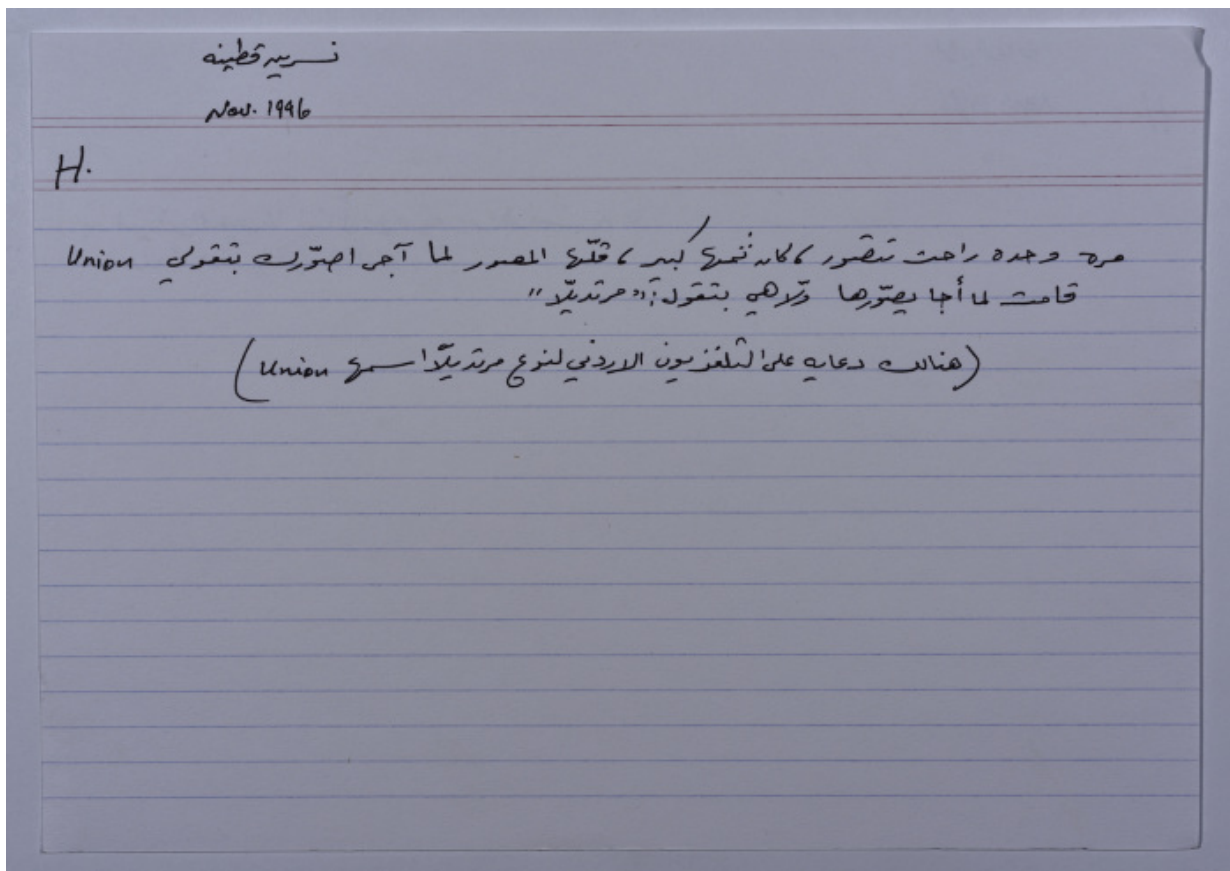 نسرين قطينه
Nov. 1996
H.
مره وحده راحت تتصور، كان ثمها كبير، قلّها المصور لما آجي اصوّرك بتقولي Union
قامت لما أجا يصوّرها ولّا هي بتقول: "مرتديلّا"
(هنالك دعايه على التلفزيون الاردني لنوع مرتديلّا اسمها Union)